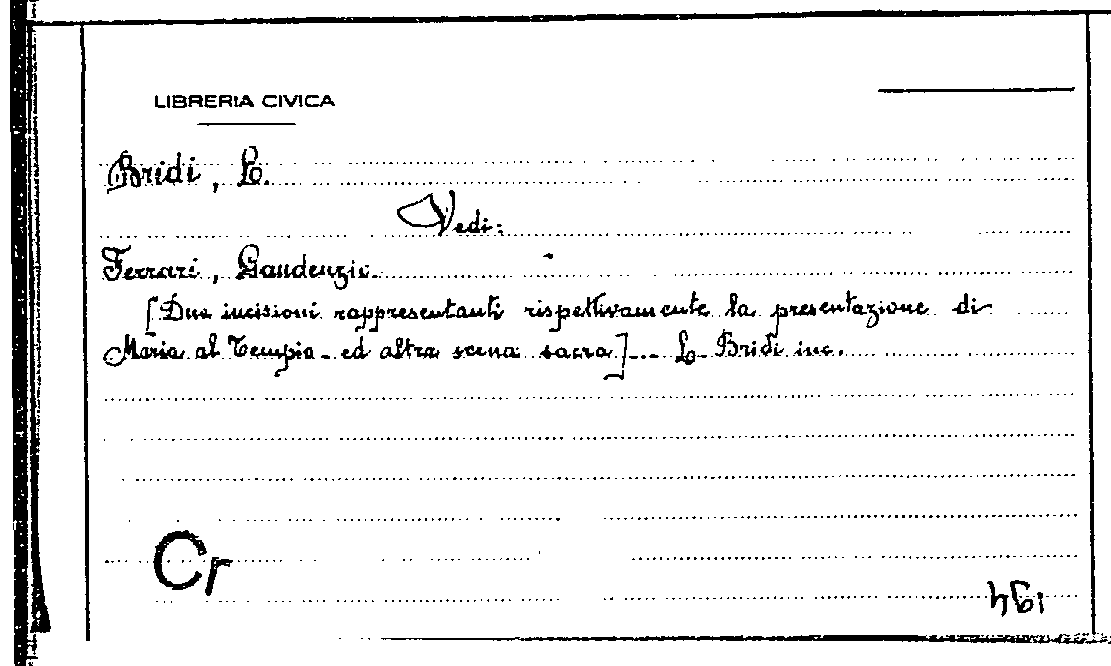 LIBRERIA CIVICA
Bridi, L.
Vedi:
Ferrari, Gaudenzio.
[Due incisioni rappresentanti rispettivamente la presentazione di
Maria al Tempio - ed altra scena sacra] - L. Bridi inc.
Cr